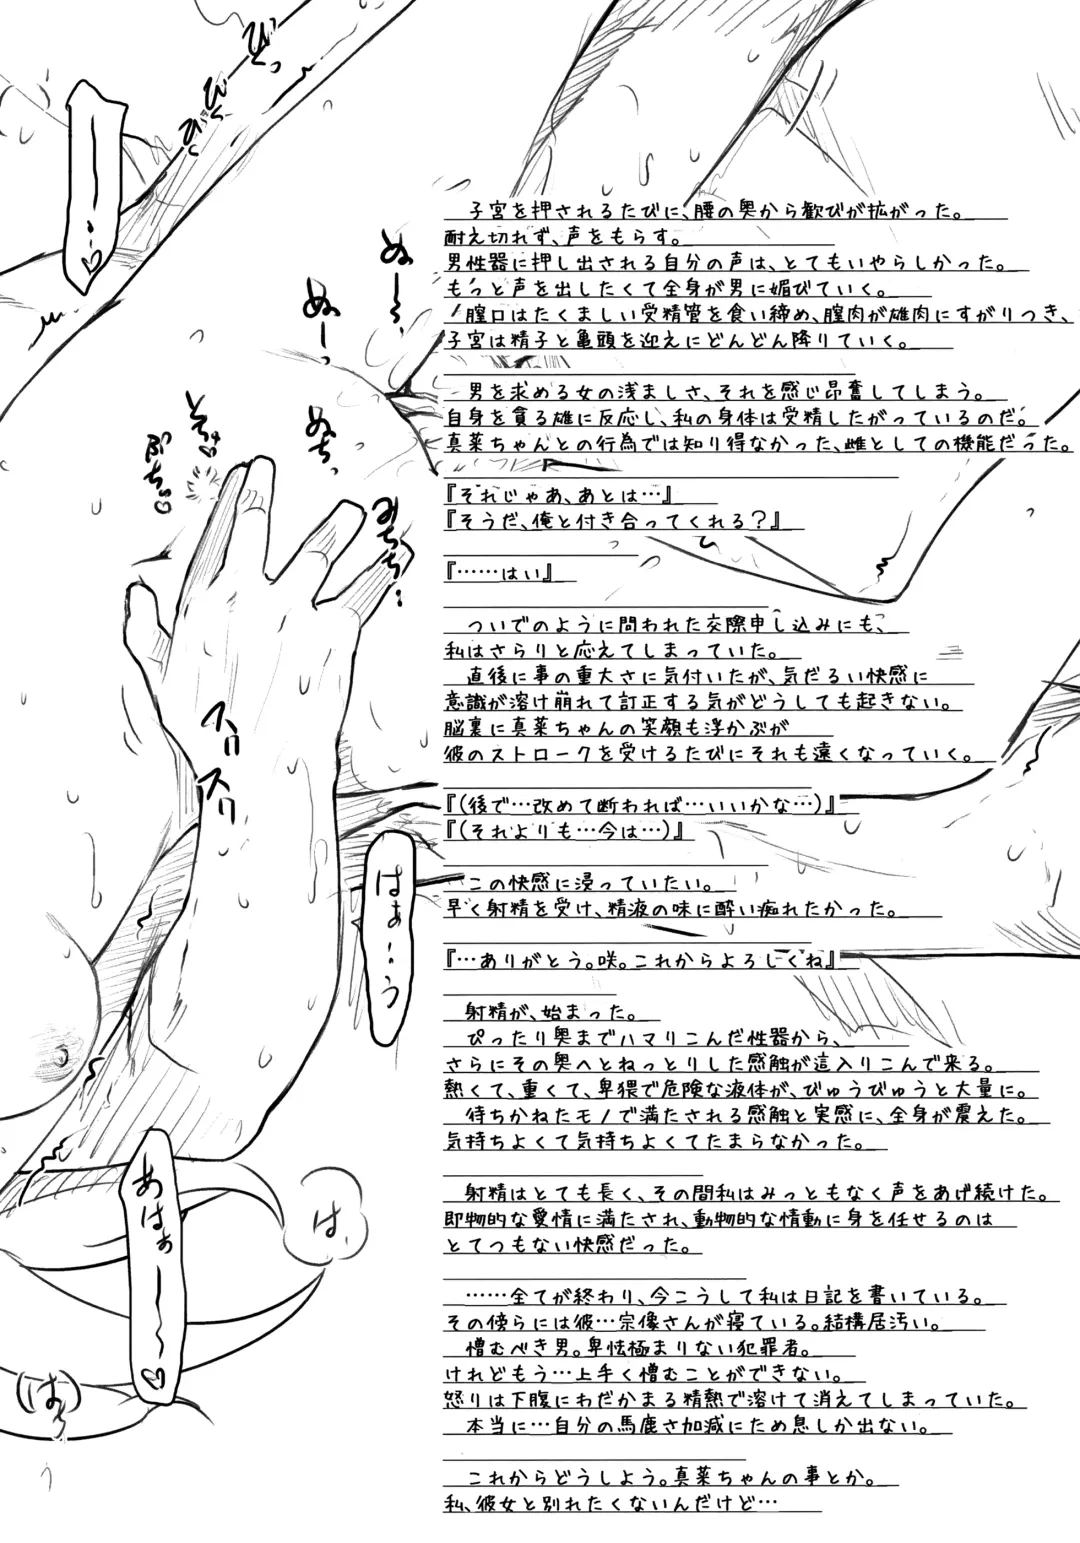 子宮を押されるたびに、腰の奥から歓びが拡がった。
耐え切れず、声をもらす。
男性器に押し出される自分の声は、とてもいやらしかった。
もっと声を出したくて全身が男に媚びていく。
膣口はたくましい受精管を食い締め、膣肉が雄肉にすがりつき、
子宮は精子と亀頭を迎えにどんどん降りていく。
男を求める女の浅ましさ、それを感じ昂奮してしまう。
自身を貪る雄に反応し、私の身体は受精したがっているのだ。
真薬ちゃんとの行為では知り得なかった、雌としての機能だった。
『それじゃあ、あとは…』
『そうだ、俺と付き合ってくれる?』
『……はい』
ついでのように問われた交際申し込みにも、
私はさらりと応えてしまっていた。
直後に事の重大さに気付いたが、気だるい快感に
意識が溶け崩れて訂正する気がどうしても起きない。
脳裏に真薬ちゃんの笑顔も浮かぶが
彼のストロークを受けるたびにそれも遠くなっていく。
『(後で…改めて断われば…いいかな…)』
『(それよりも…今は…)』
この快感に浸っていたい。
早く射精を受け、精液の味に酔い痴れたかった。
『…ありがとう。咲。これからよろしくね』
射精が、始まった。
ぴったり奥までハマりこんだ性器から、
さらにその奥へとねっとりした感触が這入りこんで来る。
熱くて、重くて、卑猥で危険な液体が、びゅうびゅうと大量に。
待ちかねたモノで満たされる感触と実感に、全身が震えた。
気持ちよくて気持ちよくてたまらなかった。
射精はとても長く、その間私はみっともなく声をあげ続けた。
即物的な愛情に満たされ、動物的な情動に身を任せるのは
とてつもない快感だった。
……全てが終わり、今こうして私は日記を書いている。
その傍らには彼…宗像さんが寝ている。結構居汚い。
憎むべき男。卑怯極まりない犯罪者。
けれどもう…上手く憎むことができない。
怒りは下腹にわだかまる精熱で溶けて消えてしまっていた。
本当に…自分の馬鹿さ加減にため息しか出ない。
これからどうしよう。真薬ちゃんの事とか。
私、彼女と別れたくないんだけど…
びっ
びくっ
ぬ〜〜っ
ぬーっ
ぬちっ
みちち…
ぷちっ♡
スリ
スリ
はぁ…う
あはぁーー…♡
は
(はぁ